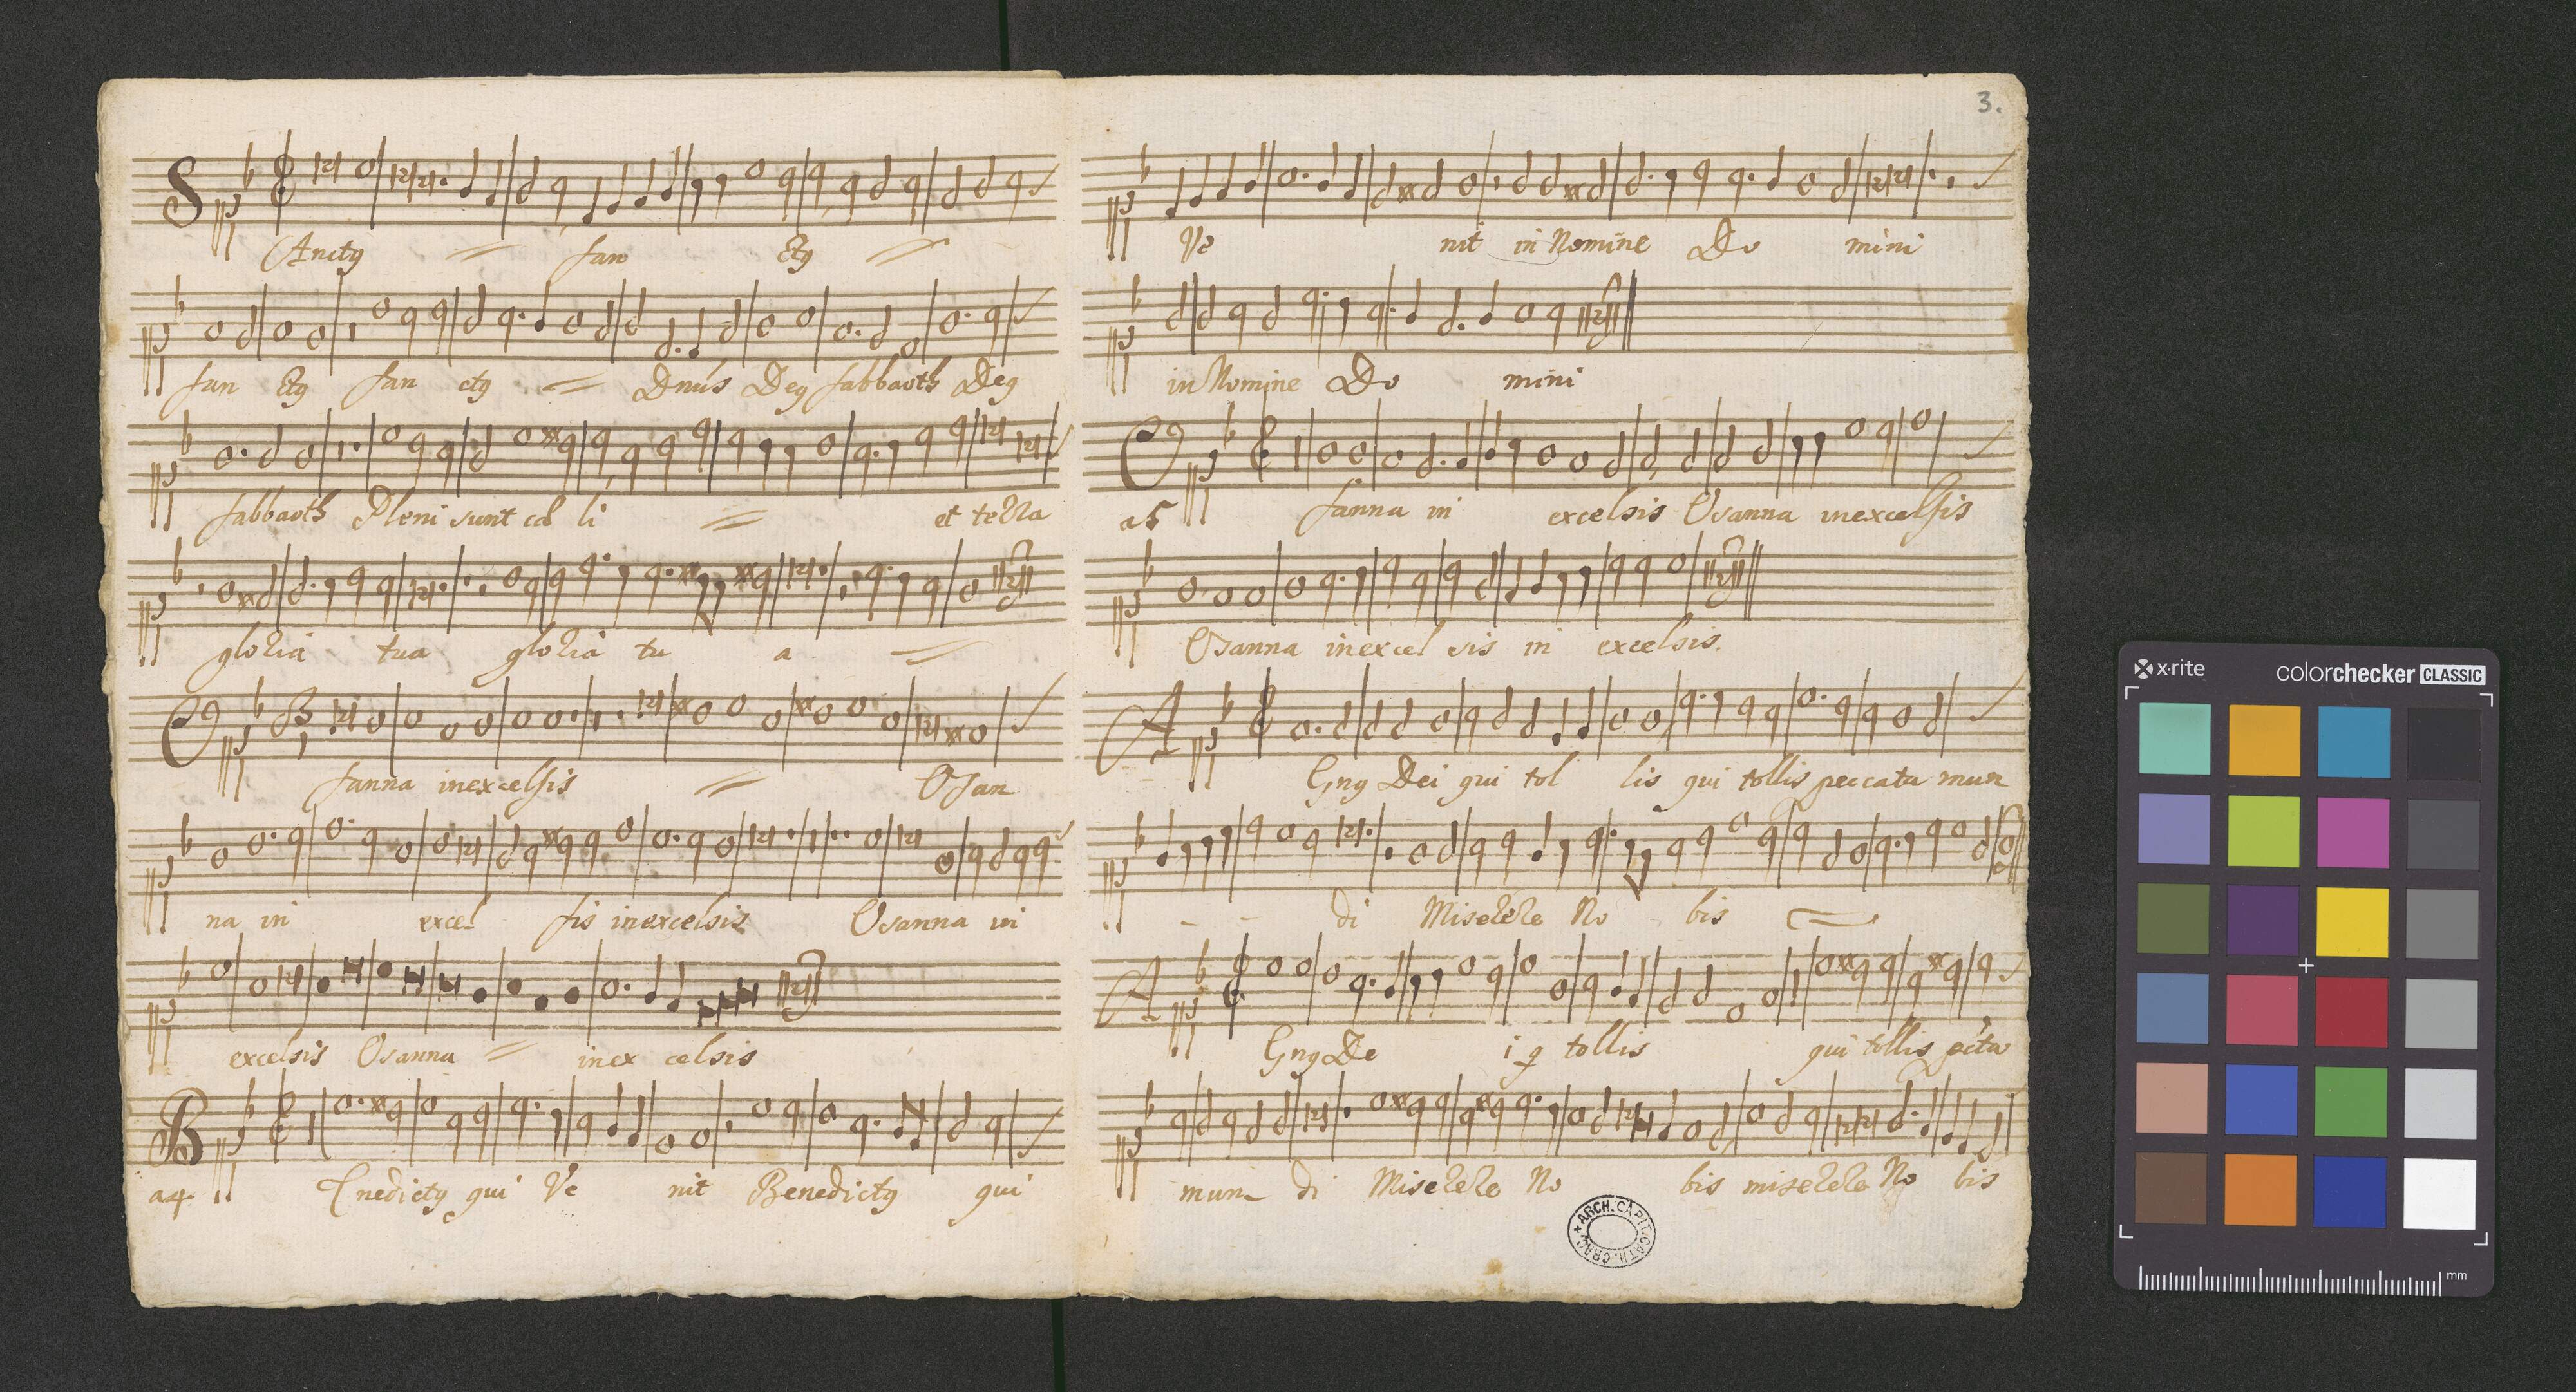 S
Anctꝰ = san ctꝰ =
san ctꝰ san ctꝰ = Dnūs Deꝰ sabbaoth Deꝰ
sabbaoth Pleni sunt cœ li = et terra
gloria tua gloria tu a =
O
sanna in excelsis = Osan
na in excel sis in excelsis Osanna in
excelsis Osanna = in ex celsis
B
a4. Enedictꝰ qui Ve nit Benedictꝰ qui
3.
Ve nit in Nomine Do mini
in Nomine Do mini
O
a5 sanna in excelsis Osanna in excelsis
Osanna in excel sis in excelsis.
A
Gnꝰ Dei qui tol lis qui tollis peccata mun
- - di Miserere No bis =
A
Gnꝰ De i q tollis qui tollis pcta
mun di Miserere No bis miserere No bis
ARCH. CAPIT. CATH. CRAC.
x·rite
colorchecker CLASSIC
mm